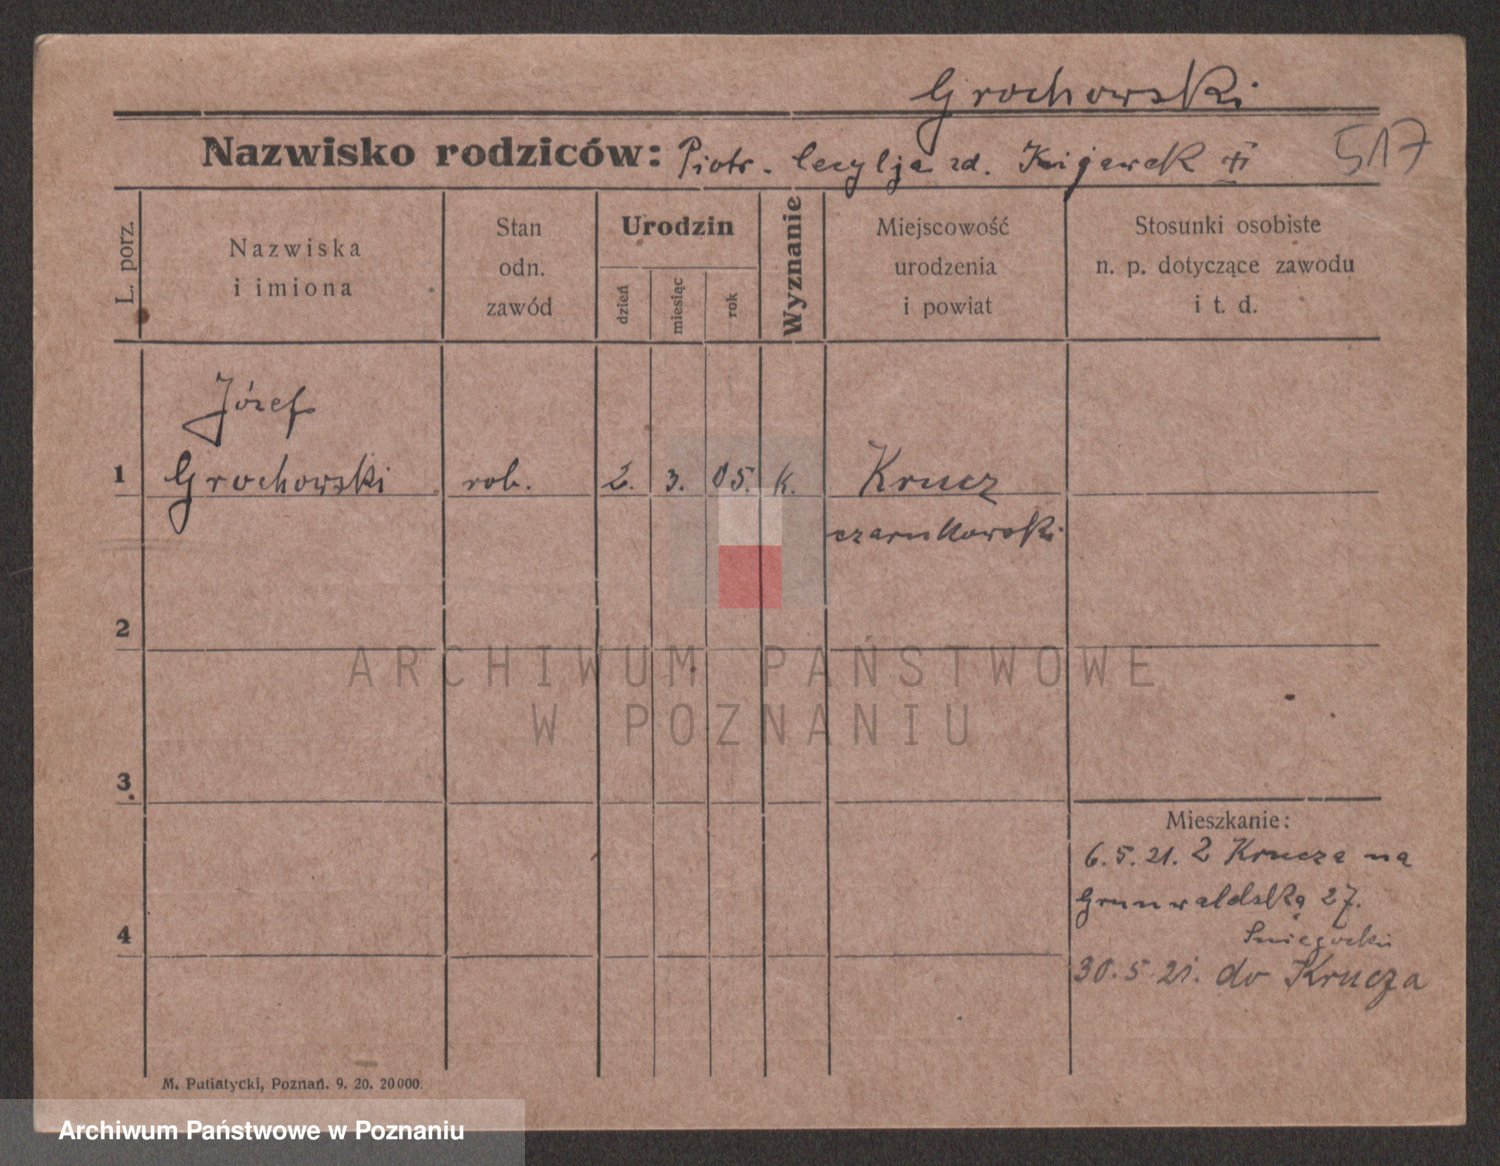 Grochowski
Nazwisko rodziców: Piotr. Cecylja zd. Kijawek
517
L. porz.
Nazwiska
i imiona
Stan
odn.
zawód
Urodzin
dzień
miesiąc
rok
Wyznanie
Miejscowość
urodzenia
i powiat
Stosunki osobiste
n. p. dotyczące zawodu
i t. d.
Józef
1 Grochowski rob. 2. 3. 05. k. Krucz
czarnkowski
2
ARCHIWUM PAŃSTWOWE
W POZNANIU
3
Mieszkanie:
6.5.21. Z Krucza na
Grunwaldską 27.
4
30.5.21. do Krucza
M. Putiatycki, Poznań. 9. 20. 20000.
Archiwum Państwowe w Poznaniu